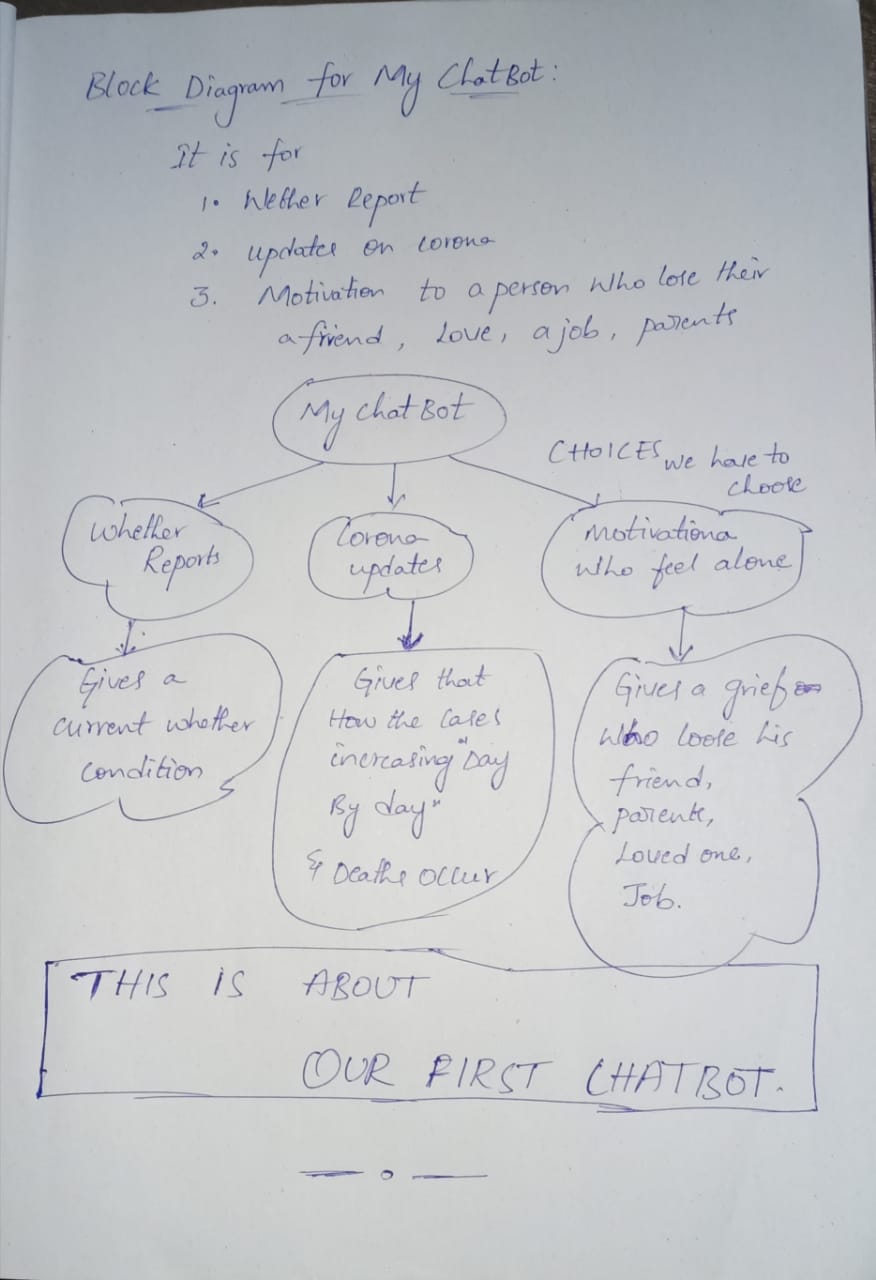 Block Diagram for My ChatBot:
It is for
1. Wether Report
2. updates on corona
3. Motivation to a person who lose their
a friend, Love, a job, parents
My Chat Bot
CHOICES we have to
choose
Whether
Reports
Corona
updates
Motivationa
who feel alone
Gives a
current whether
condition
Gives that
How the cases
increasing "Day
By day"
& Deaths occur
Gives a grief
who loose his
friend,
parents,
Loved one,
Job.
THIS IS ABOUT
OUR FIRST CHATBOT.